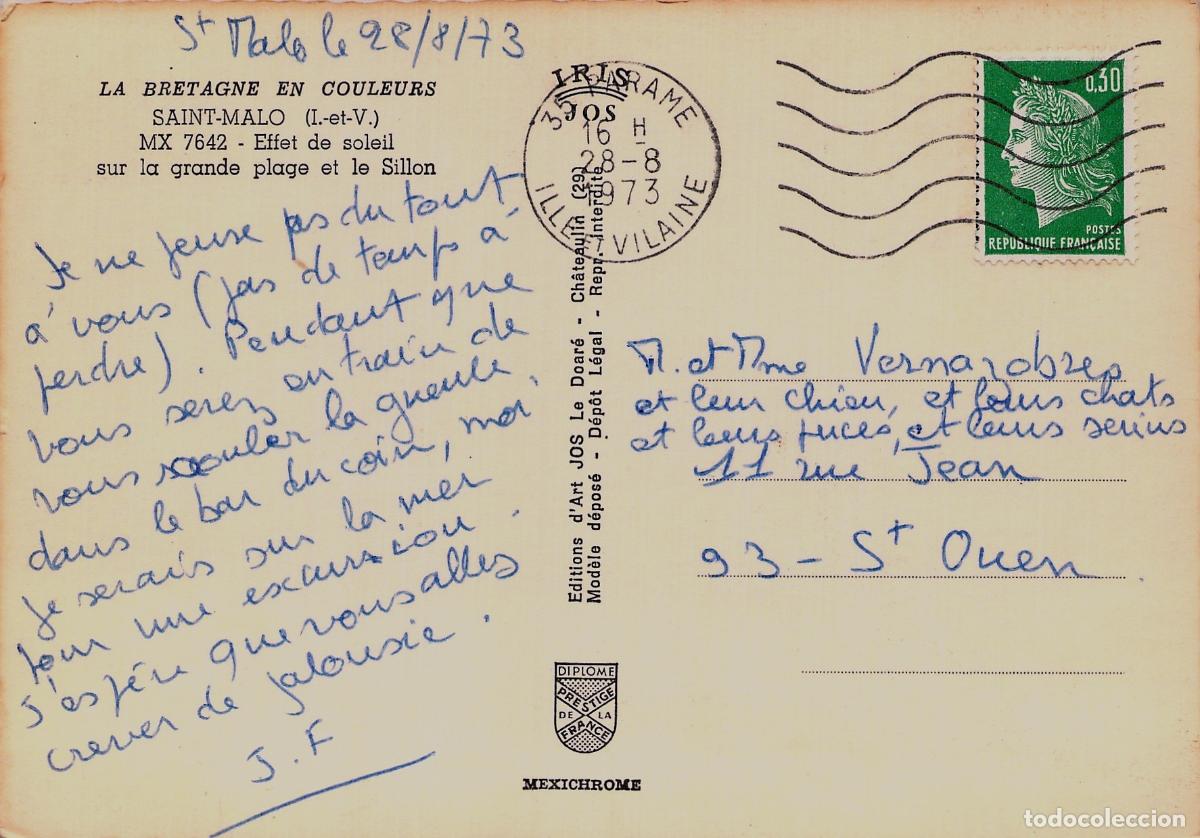 St Malo le 28/8/73
LA BRETAGNE EN COULEURS
SAINT-MALO (I.-et-V.)
MX 7642 - Effet de soleil
sur la grande plage et le Sillon
Je ne pense pas du tout
à vous (pas de temps à
perdre). Pendant que
vous serez en train de
vous saouler la gueule
dans le bar du coin, moi
je serais sur la mer
pour une excursion.
J'espère que vous allez
crever de jalousie.
J. F
IRIS
JOS
35 PARAME
16 H
28-8
1973
ILLE ET VILAINE
Editions d'Art JOS Le Doaré - Châteaulin (29)
Modèle déposé - Dépôt Légal - Repr. Interdite
DIPLOME
PRESTIGE
DE LA
FRANCE
MEXICHROME
0,30
POSTES
REPUBLIQUE FRANÇAISE
M. et Mme Vernazobres
et leur chien, et leurs chats
et leurs puces, et leurs serins
11 rue Jean
93 - St Ouen
todocoleccion